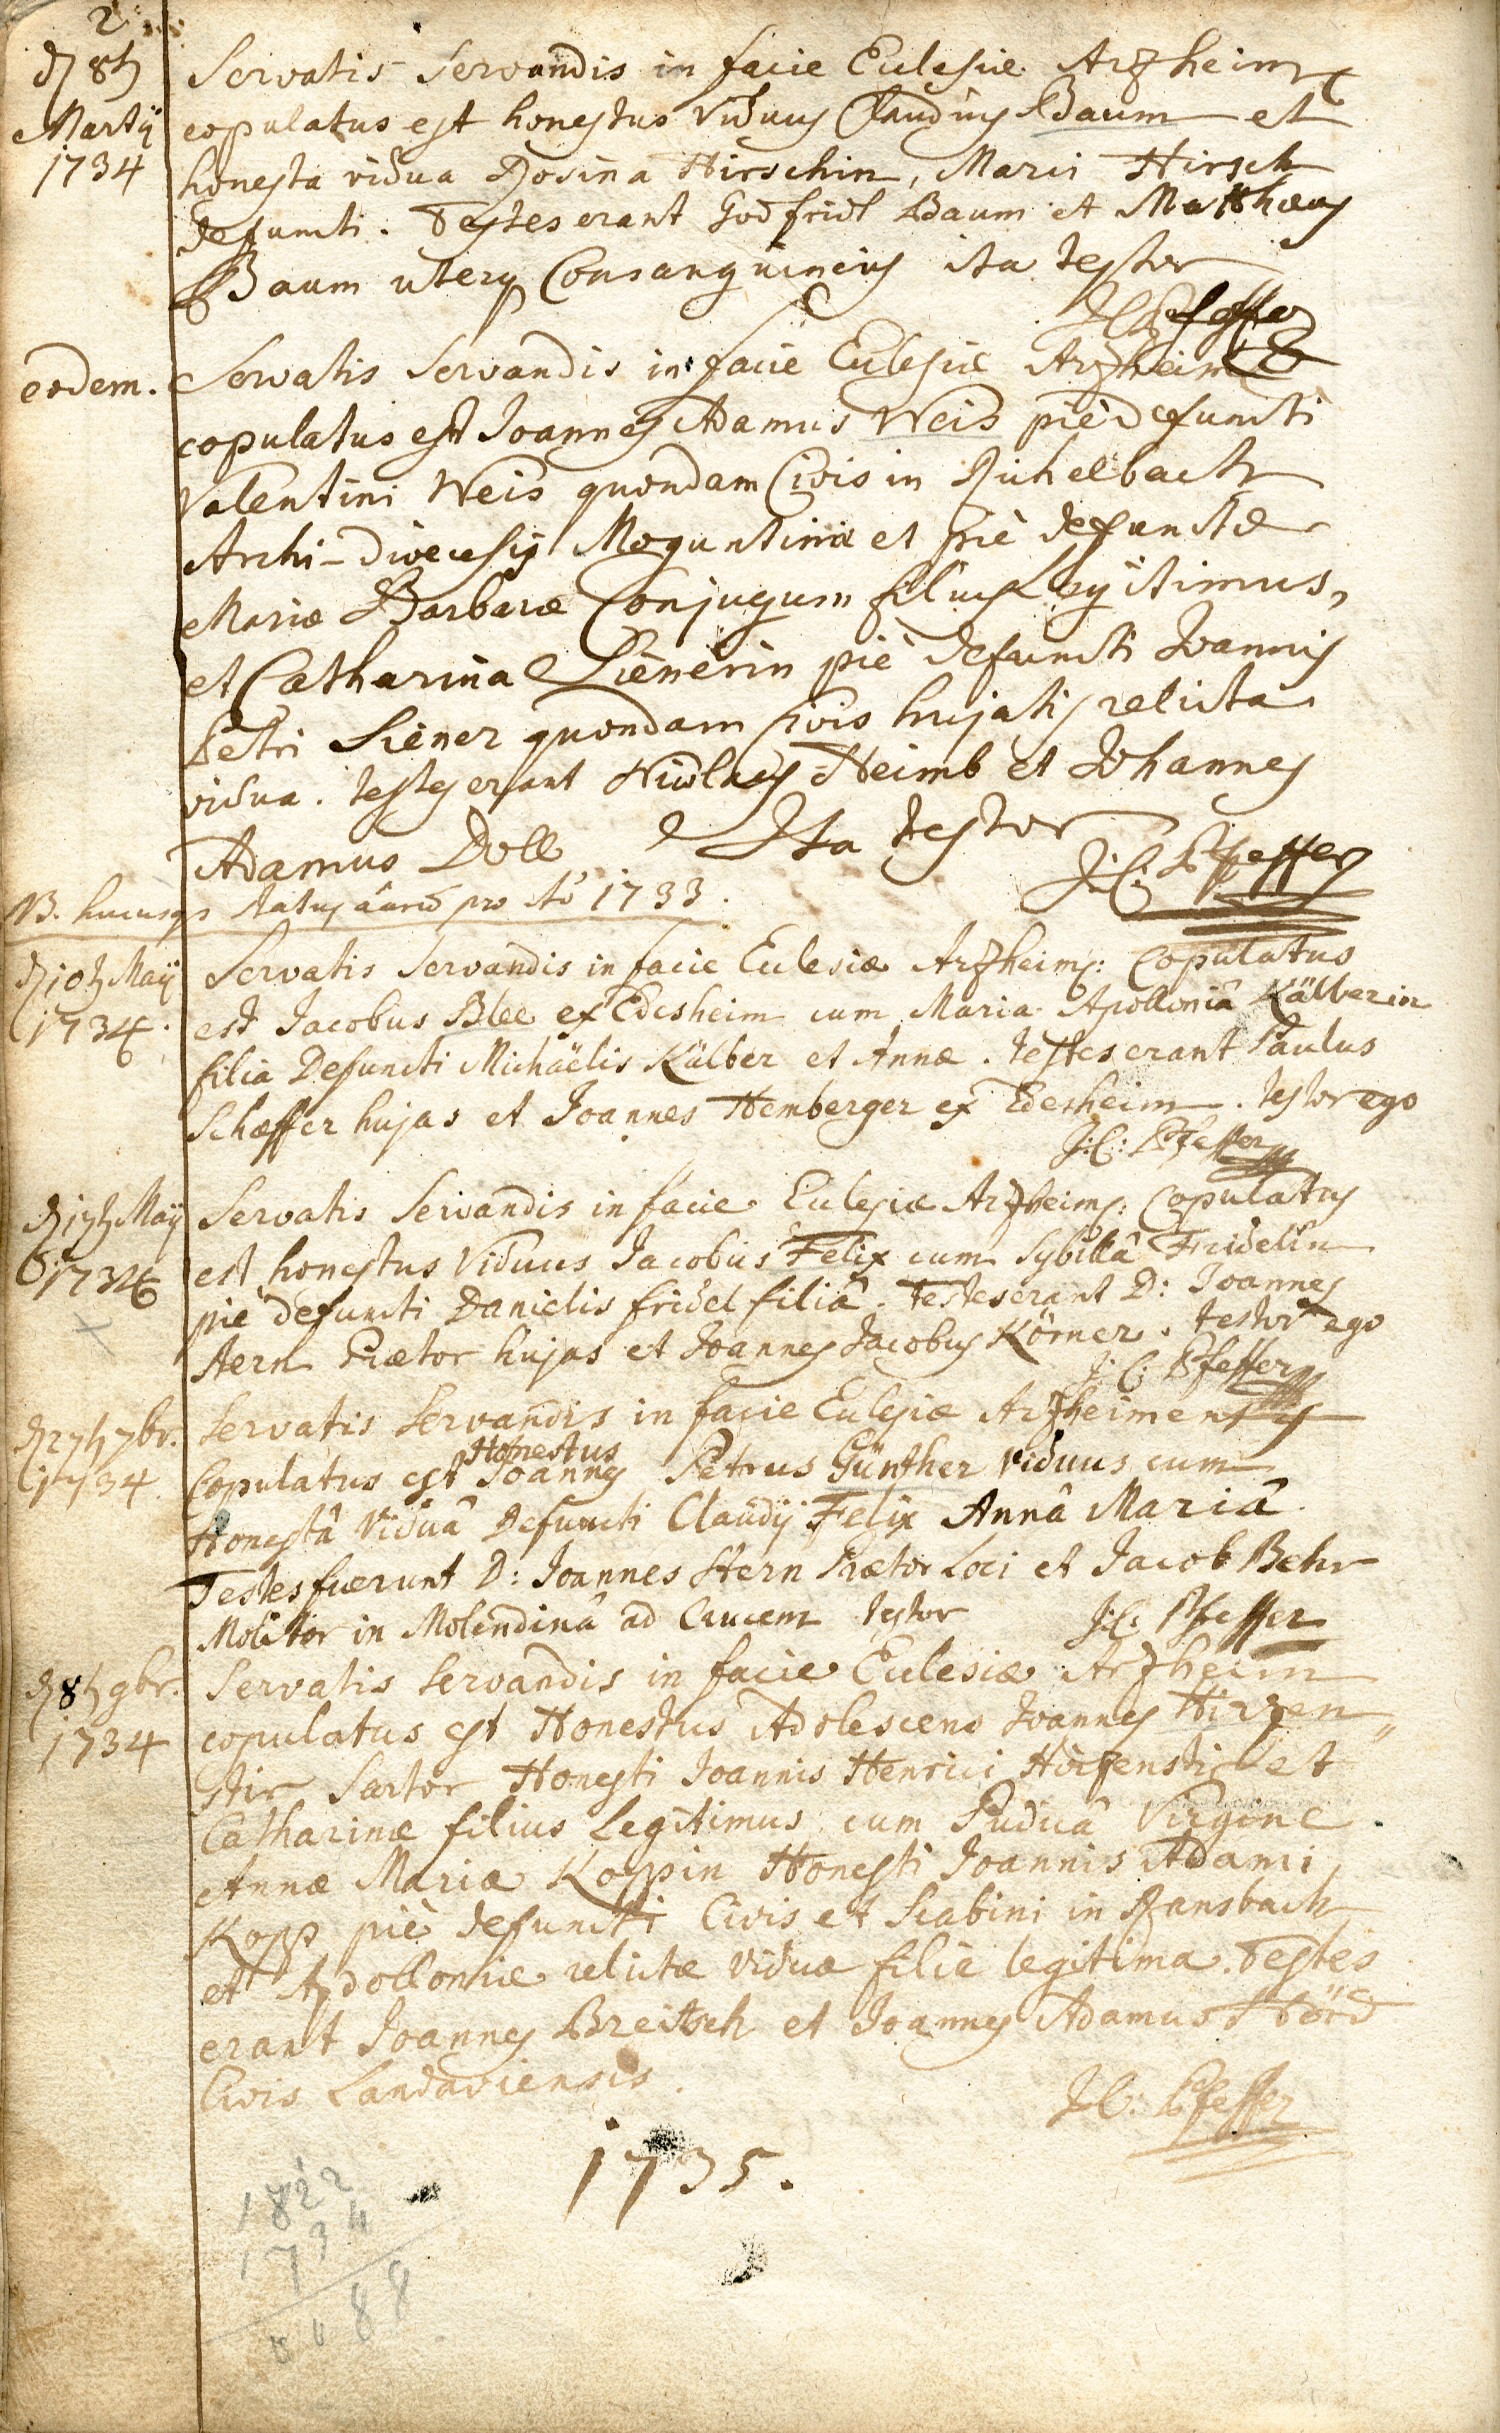 2
d 8t Servatis Servandis in facie Eclesiæ Arzheim
Martÿ copulatus est honestus Viduus Claudius Baum et
1734 honesta vidua Rosina Hirschin, Marci Hirsch
defuncti. Testes erant Godfridt Baum et Matthæus
Baum uterq Consanguineus ita testor
J C Pfeffer
eodem. Servatis Servandis in facie Eclesiæ Arzheim
copulatus est Joannes Adamus Weis piè defuncti
Valentini Weis quondam Civis in Richelbach
Archi-Diœcesis Moguntinæ et piè defunctæ
Mariæ Barbaræ Conjugum filius legitimus,
et Catharina Sienerin piè defuncti Joannis
Petri Siener quondam Civis hujatis relicta
vidua. testes erant Nicolaus Heimb et Johannes
Adamus Doll Ita testor
J: C: Pfeffer
NB. hucusq status pro Aõ 1733.
d 10t Maÿ Servatis Servandis in facie Eclesiæ Arzheims: Copulatus
1734. est Jacobus Blee ex Edesheim cum Maria Apolloniâ Kälberin
filia Defuncti Michaëlis Kälber et Annæ. testes erant Paulus
Schæffer hujas et Joannes Hemberger ex Edesheim. testor ego
J: C: Pfeffer
d 17t Maÿ Servatis Servandis in facie Eclesiæ Arzheims: Copulatus
1734 est honestus Viduus Jacobus Felix cum Sybillâ Fridelin
pie defuncti Danielis fridel filiâ. Testes erant D: Joannes
Stern Prætor hujas et Joannes Jacobus Körner. testor ego
J: C: Pfeffer
d 27t 7br. Servatis Servandis in facie Eclesiæ Arzheimensis
Honestus
1734 Copulatus est Joannes Petrus Günther Viduus cum
Honestâ Viduâ Defuncti Claudÿ Felix Annâ Mariâ.
Testes fuerunt D: Joannes Stern Prætor Loci et Jacob Behr
Molitor in Molendinâ ad Crucem testor J: C: Pfeffer
d 8t 9br. Servatis Servandis in facie Eclesiæ Arzheim
1734 copulatus est Honestus Adolescens Joannes Hirzen„
stir Sartor Honesti Joannis Henrici Hirzenstir et
Catharinæ filius Legitimus cum Pudicâ Virgine.
Annæ Mariæ Koppin Honesti Joannis Adami
Kopp piè defuncti Civis et Scabini in Ransbach
et Apolloniæ relictæ Viduæ filiæ legitima. Testes
erant Joannes Breitsch et Joannes Adamus
Civis Landaviensis.
J C: Pfeffer
1735.
1822
1734
0088